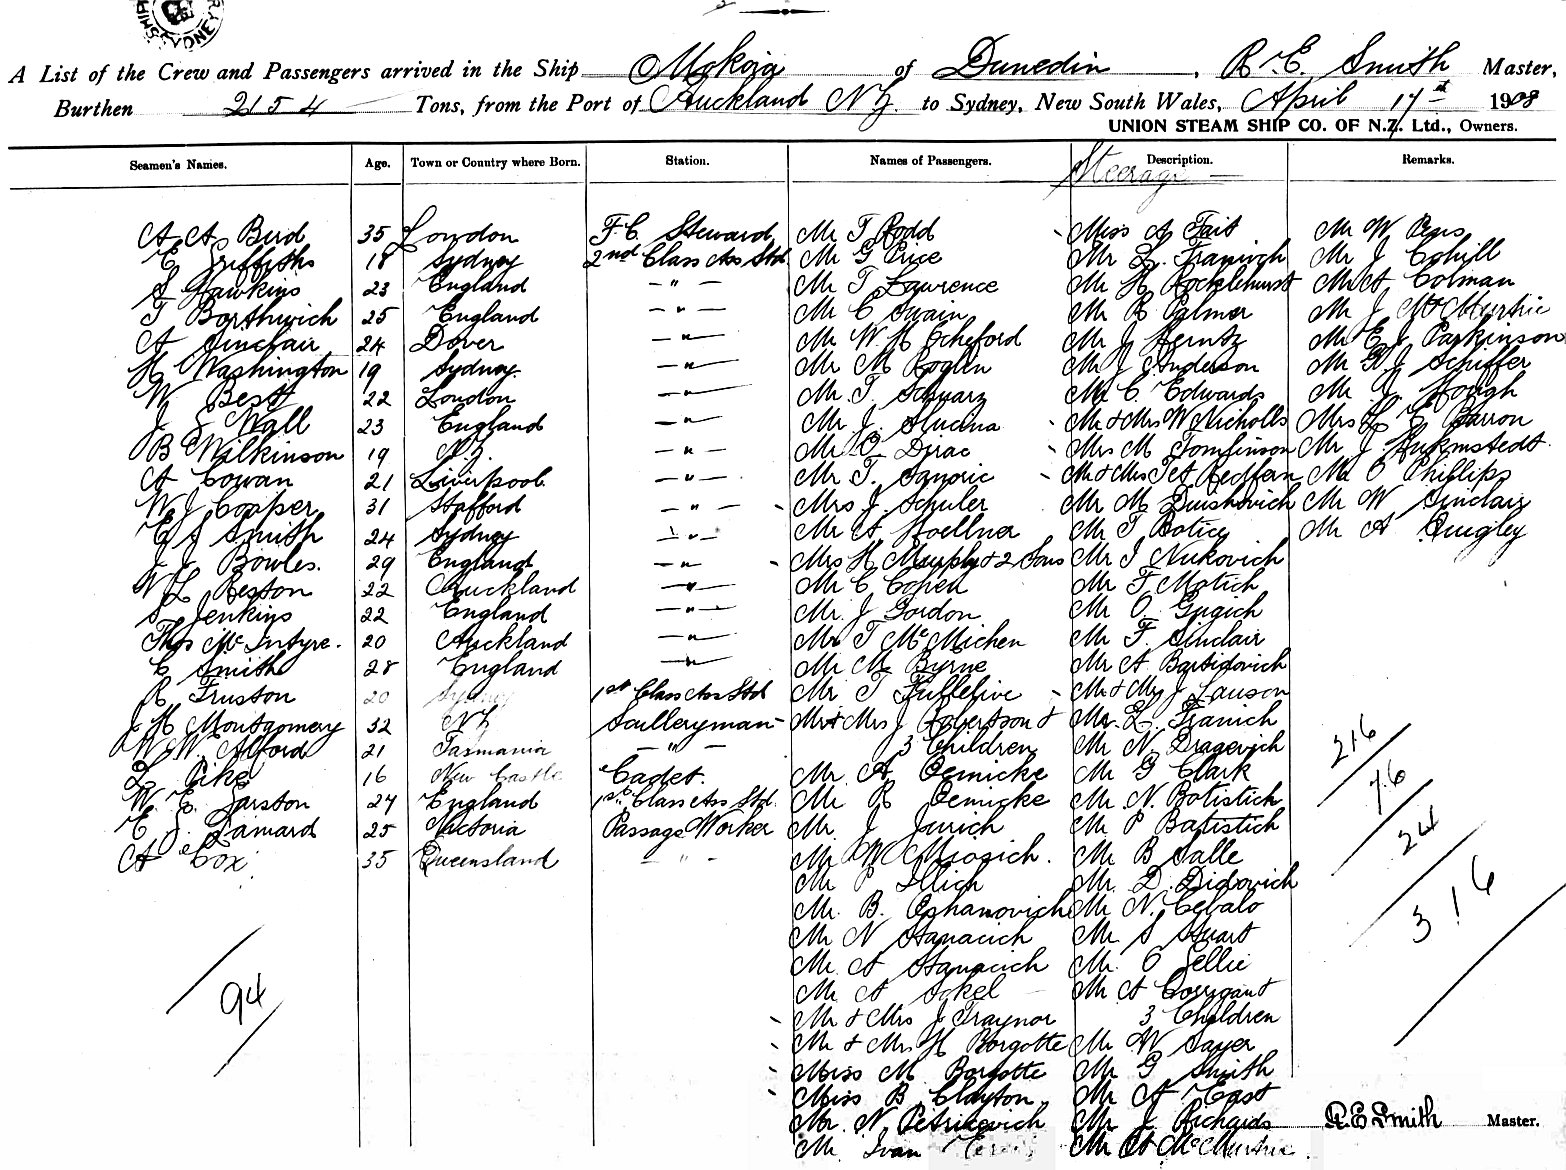 A List of the Crew and Passengers arrived in the Ship Mokoia of Dunedin, R. E. Smith Master,
Burthen 2154 Tons, from the Port of Auckland N Z. to Sydney, New South Wales, April 17 1908
UNION STEAM SHIP CO. OF N.Z. Ltd., Owners.
Seamen's Names. Age. Town or Country where Born. Station. Names of Passengers. Description. Remarks.
Steerage
A A Bird 35 London F.C. Steward Mr T Rodd Miss A Tait Mr W
E Griffiths 18 Sydney 2nd Class Ass Std. Mr G Price Mr L. Franivgh Mr J Cohill
S Hawkins 23 England - " - Mr T Lawrence Mr H Rocklehurst Mr A Colman
T Borthwich 25 England - " - Mr C Swain Mr R Palmer Mr J McMurtrie
A Sinclair 24 Dover - " - Mr W H Ocheford Mr J Hentz Mr E J Parkinson
H Washington 19 Sydney. - " - Mr M Roglin Mr J Anderson Mr G J Schiffer
W Best 22 London - " - Mr T. Schwarz Mr C Edwards Mr J Hough
J S Wall 23 England - " - Mr J. Mr & Mrs W Nicholls Mrs L E Barron
B Wilkinson 19 N.Z. - " - Mr O Dirac Mrs M Tomlinson Mr J
A Cowan 21 Liverpool. - " - Mr T. Mr & Mrs Redfern Mr C Phillips
W J Cooper 31 Stafford - " - Mrs J. Schuler Mr M Duishovich Mr W Sinclair
E S Smith 24 Sydney - " - Mr A Hoellner Mr T Botice Mr A Quigley
J J Bowles. 29 England - " - Mrs H Murphy & 2 Sons Mr I Nukovich
W L Reston 22 Auckland - " - Mr C Copen Mr T Motich
S Jenkins 22 England - " - Mr. J Gordon Mr O Gugich
Thos McIntyre. 20 Auckland - " - Mr T McMichen Mr F. Sinclair
C Smith 28 England - " - Mr M Byrne Mr A Bartidovich
R Fruston 20 Sydney 1st Class Ass Std Mr T Fullelive Mr & Mrs J Lauson
J H Montgomery 32 N Z Sculleryman Mr & Mrs J Robertson & Mr. L. Franich
W W. Alford 21 Tasmania - " - 3 Children Mr N Dragevich
L Pike 16 New Castle Cadet. Mr A. Oemicke Mr G Clark
W. E. Garston 27 England 1st Class Ass Std. Mr R Oemicke Mr. N. Botistich
E J. Tamard 25 Victoria Passage Worker Mr J Jurich Mr P Batistich
A Cox 35 Queensland - " - Mr W Miosich. Mr B Salle
Mr P Illich Mr. D. Didovich
Mr. B. Oshanovich Mr N. Cebalo
Mr N Stanacich Mr S Stuart
Mr. A Stanacich Mr. C Gellie
Mr A Sokel Mr A Corrigan &
Mr & Mrs J Traynor 3 Children
Mr & Mrs H Borgotte Mr W Sayer
Miss M Borgotte Mr G Smith
Miss B Clayton Mr A East
Mr. N. Petricevich Mr J. Richards
Mr. Ivan Mr A McMurtrie.
94
216
76
24
316
R E Smith Master.